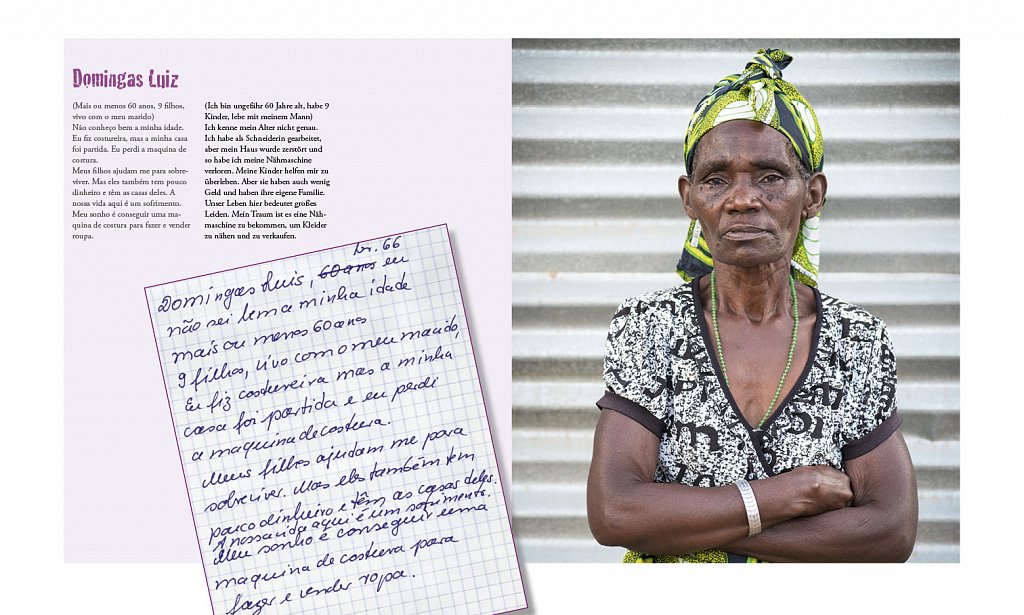 Domingas Luiz
(Mais ou menos 60 anos, 9 filhos,
vivo com o meu marido)
Não conheço bem a minha idade.
Eu fiz costureira, mas a minha casa
foi partida. Eu perdi a maquina de
costura.
Meus filhos ajudam me para sobre-
viver. Mas eles também tem pouco
dinheiro e têm as casas deles. A
nossa vida aqui é um sofrimento.
Meu sonho é conseguir uma ma-
quina de costura para fazer e vender
roupa.
(Ich bin ungefähr 60 Jahre alt, habe 9
Kinder, lebe mit meinem Mann)
Ich kenne mein Alter nicht genau.
Ich habe als Schneiderin gearbeitet,
aber mein Haus wurde zerstört und
so habe ich meine Nähmaschine
verloren. Meine Kinder helfen mir zu
überleben. Aber sie haben auch wenig
Geld und haben ihre eigene Familie.
Unser Leben hier bedeutet großes
Leiden. Mein Traum ist es eine Näh-
maschine zu bekommen, um Kleider
zu nähen und zu verkaufen.
66
Domingas Luis, 60 anos eu
não sei bem a minha idade
mais ou menos 60 anos
9 filhos, vivo com o meu marido,
Eu fiz costureira mas a minha
casa foi partida e eu perdi
a maquina de costura.
Meus filhos ajudam me para
sobreviver. Mas eles também tem
pouco dinheiro e têm as casas deles.
A nossa vida aqui é um sofrimento.
Meu sonho é conseguir uma
maquina de costura para
fazer e vender ropa.